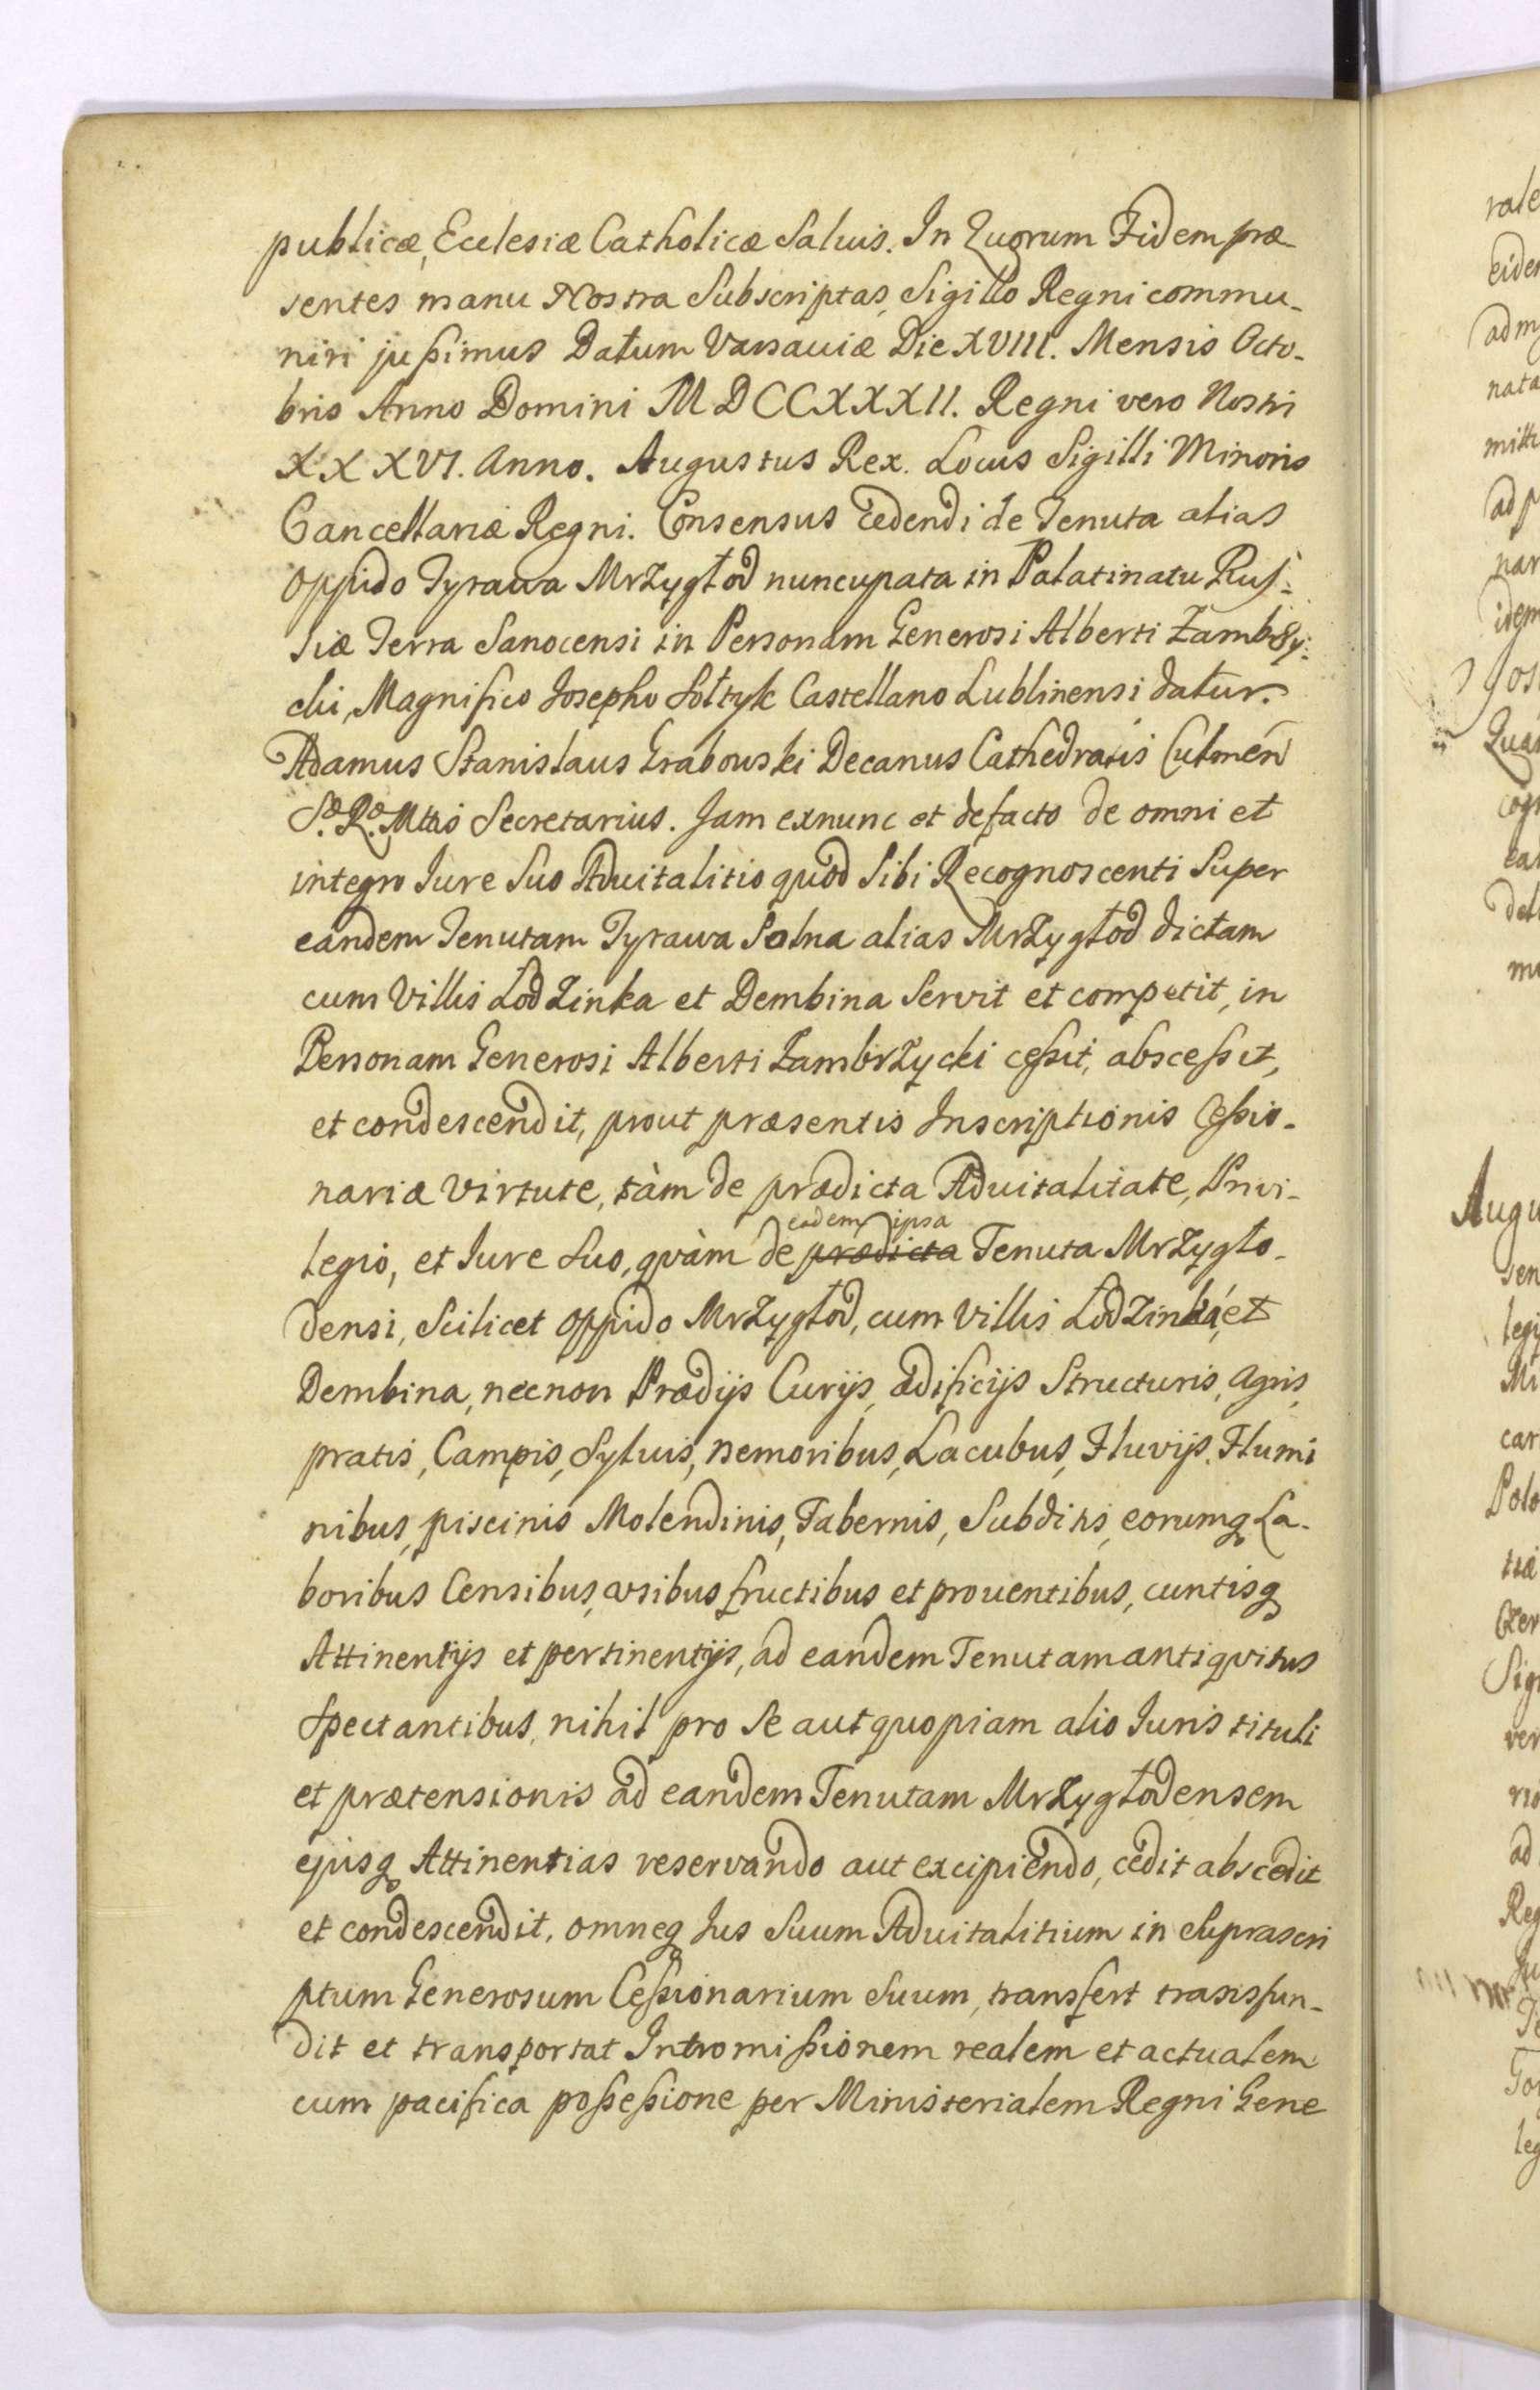 publicæ, Ecclesiæ Catholicæ Saluis. In Quorum Fidem præ-
sentes manu Nostra Subscriptas, Sigillo Regni commu-
niri jußimus Datum Varsauiæ Die XVIII. Mensis Octo-
bris Anno Domini MDCCXXXII. Regni vero Nostri
XXXVI. Anno. Augustus Rex. Locus Sigilli Minoris
Cancellariæ Regni. Consensus Cedendi de Tenuta alias
Oppido Tyrawa Mrzygłod nuncupata in Palatinatu Rus-
siæ Terra Sanocensi in Personam Generosi Alberti Zambrzy-
cki, Magnifico Josepho Sołtyk Castellano Lublinensi datur.
Adamus Stanislaus Grabowski Decanus Cathedralis Culmen
Sæ. Ræ. Mttis Secretarius. Jam exnunc et defacto de omni et
integro Iure Suo Aduitalitio quod Sibi Recognoscenti Super
eandem Tenutam Tyrawa Solna alias Mrzygłod dictam
cum Villis Lodzinka et Dembina Servit et competit, in
Personam Generosi Alberti Zambrzycki ceßit, absceßit,
et condescendit, prout præsentis Inscriptionis Ceßio-
nariæ virtute, tàm de prædicta Aduitalitate, Privi-
legio, et Iure Suo, quàm de prædicta eadem ipsa Tenuta Mrzygło-
densi, Scilicet Oppido Mrzygłod, cum Villis Lodzinka, et
Dembina, necnon Prædijs Curijs, ædificijs Structuris, Agris,
pratis, Campis, Syluis, nemoribus, Lacubus, Fluvijs, Flumi
nibus, piscinis Molendinis, Tabernis, Subditis, eorumq La-
boribus Censibus, usibus fructibus et prouentibus, cuntisq
Attinentijs et pertinentijs, ad eandem Tenutam antiquitus
Spectantibus, nihil pro Se aut quopiam alio Iuris tituli
et prætensionis ad eandem Tenutam Mrzygłodensem
ejusq Attinentias reservando aut excipiendo, cedit abscedit
et condescendit, omneq Jus Suum Aduitalitium in Suprascri
ptum Generosum Ceßionarium Suum, transfert transfun-
dit et transportat Intromißionem realem et actualem
cum pacifica poßeßione per Ministerialem Regni Gene